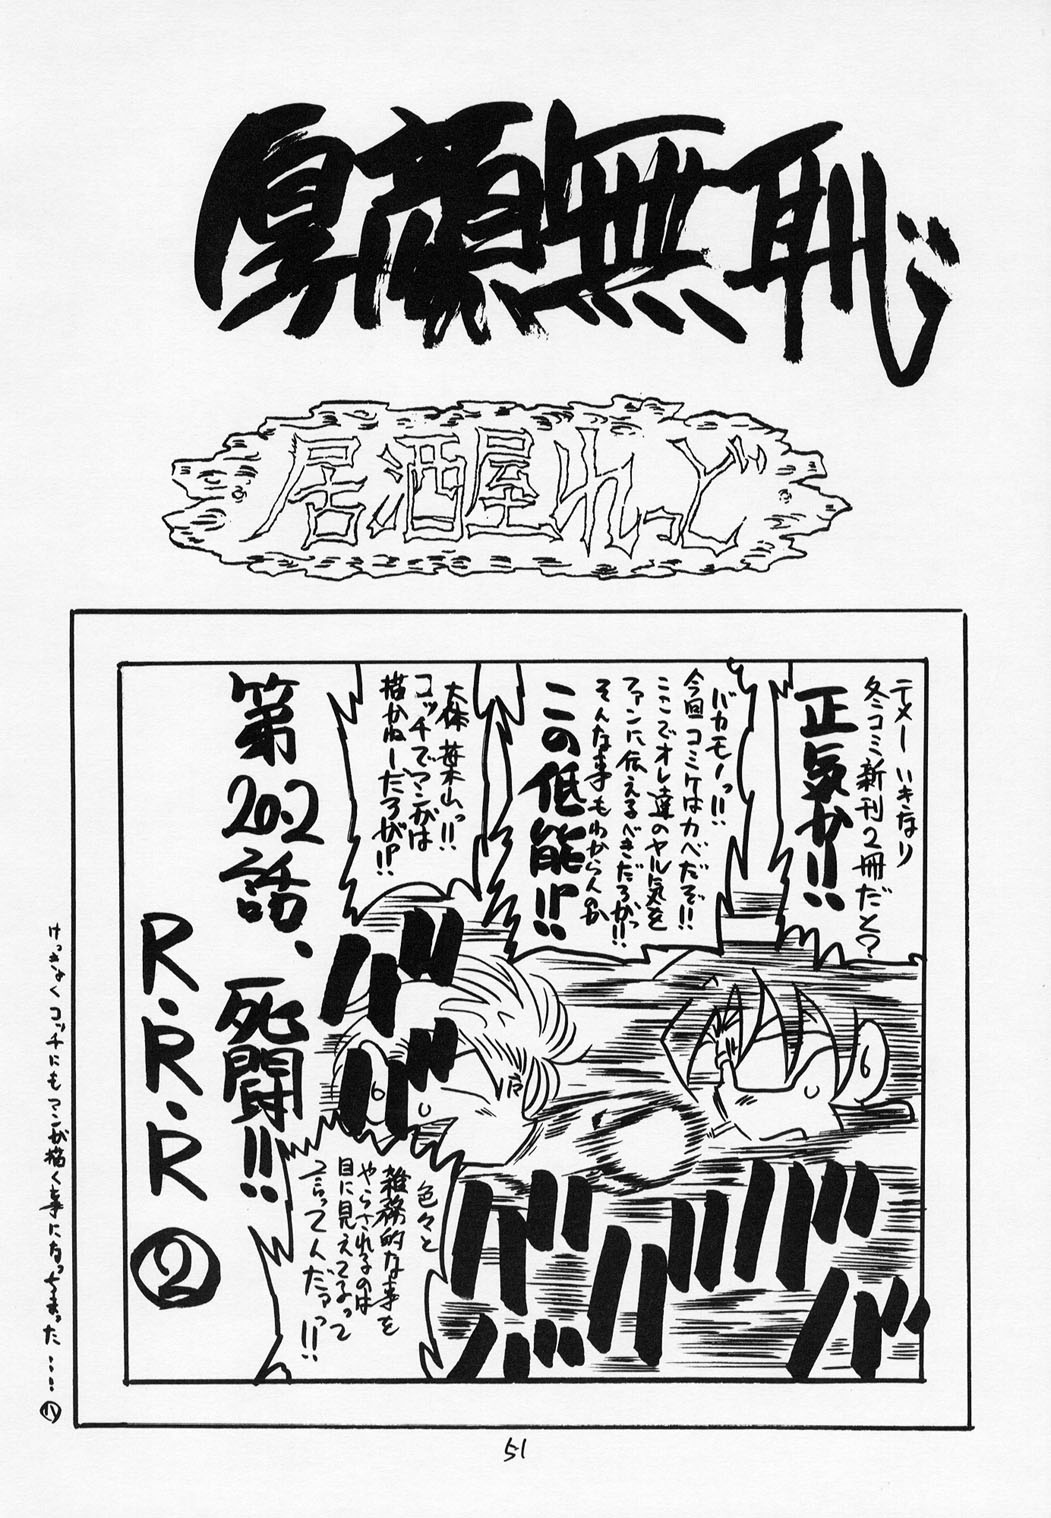 厚顔無恥じ
居酒屋れっど
テメー いきなり
冬コミ新刊2冊だと?
正気か!!
バカモノっ!!
今回コミケはカベだぞ!!
ここでオレ達のヤル気を
ファンに伝えるべきだろがっ!!
そんな事もわからんのか
この低能!?!!
大体 葉山っ!!
コッチでマンガは
描かねーだろが!?
第20.2話、死闘!!
R.R.R ②
色々と
雑務的な事を
やらされるのは
目に見えてるって
言ってんだろっ!!
ババババ
バババババ
けっきょくコッチにもマンガ描く事になっちまった……
51